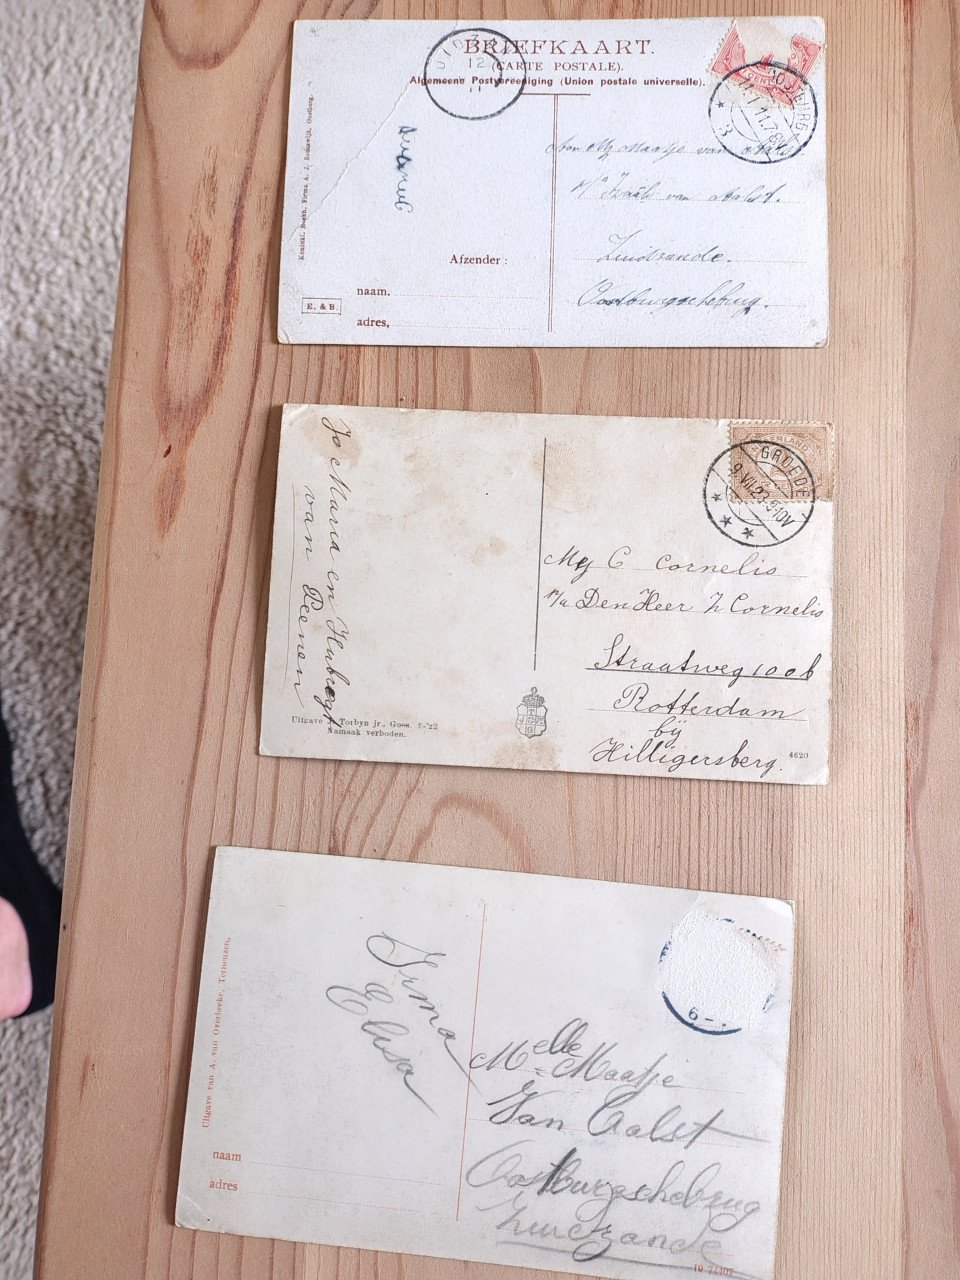 BRIEFKAART.
(CARTE POSTALE).
Algemeene Postvereeniging (Union postale universelle).
12
CENT
OOSTBURG
3
Koninkl. Boekh. Firma A. J. Bronswijk, Oostburg.
Aan Mej Maatje van Aalst.
Pr Izaäk van Aalst.
Zuidzande.
Oostburgschebrug.
Afzender :
naam.
adres,
E. & B.
NEDERLAND
GROEDE
9.VII.23.9-10V
Jo Maria en Hubregt
van Peenen
Mej C Cornelis
p/a Den Heer L Cornelis
Straatweg 100b
Rotterdam
bij
Hilligersberg.
Uitgave Torbyn jr., Goes. 9-'22
Namaak verboden.
4620
Uitgave van A. van Overbeeke, Terneuzen.
Irma
Elisa
6-
Melle Maatje
Van Aalst
Oostburgschebrug
Zuidzande
naam
adres
10 74407